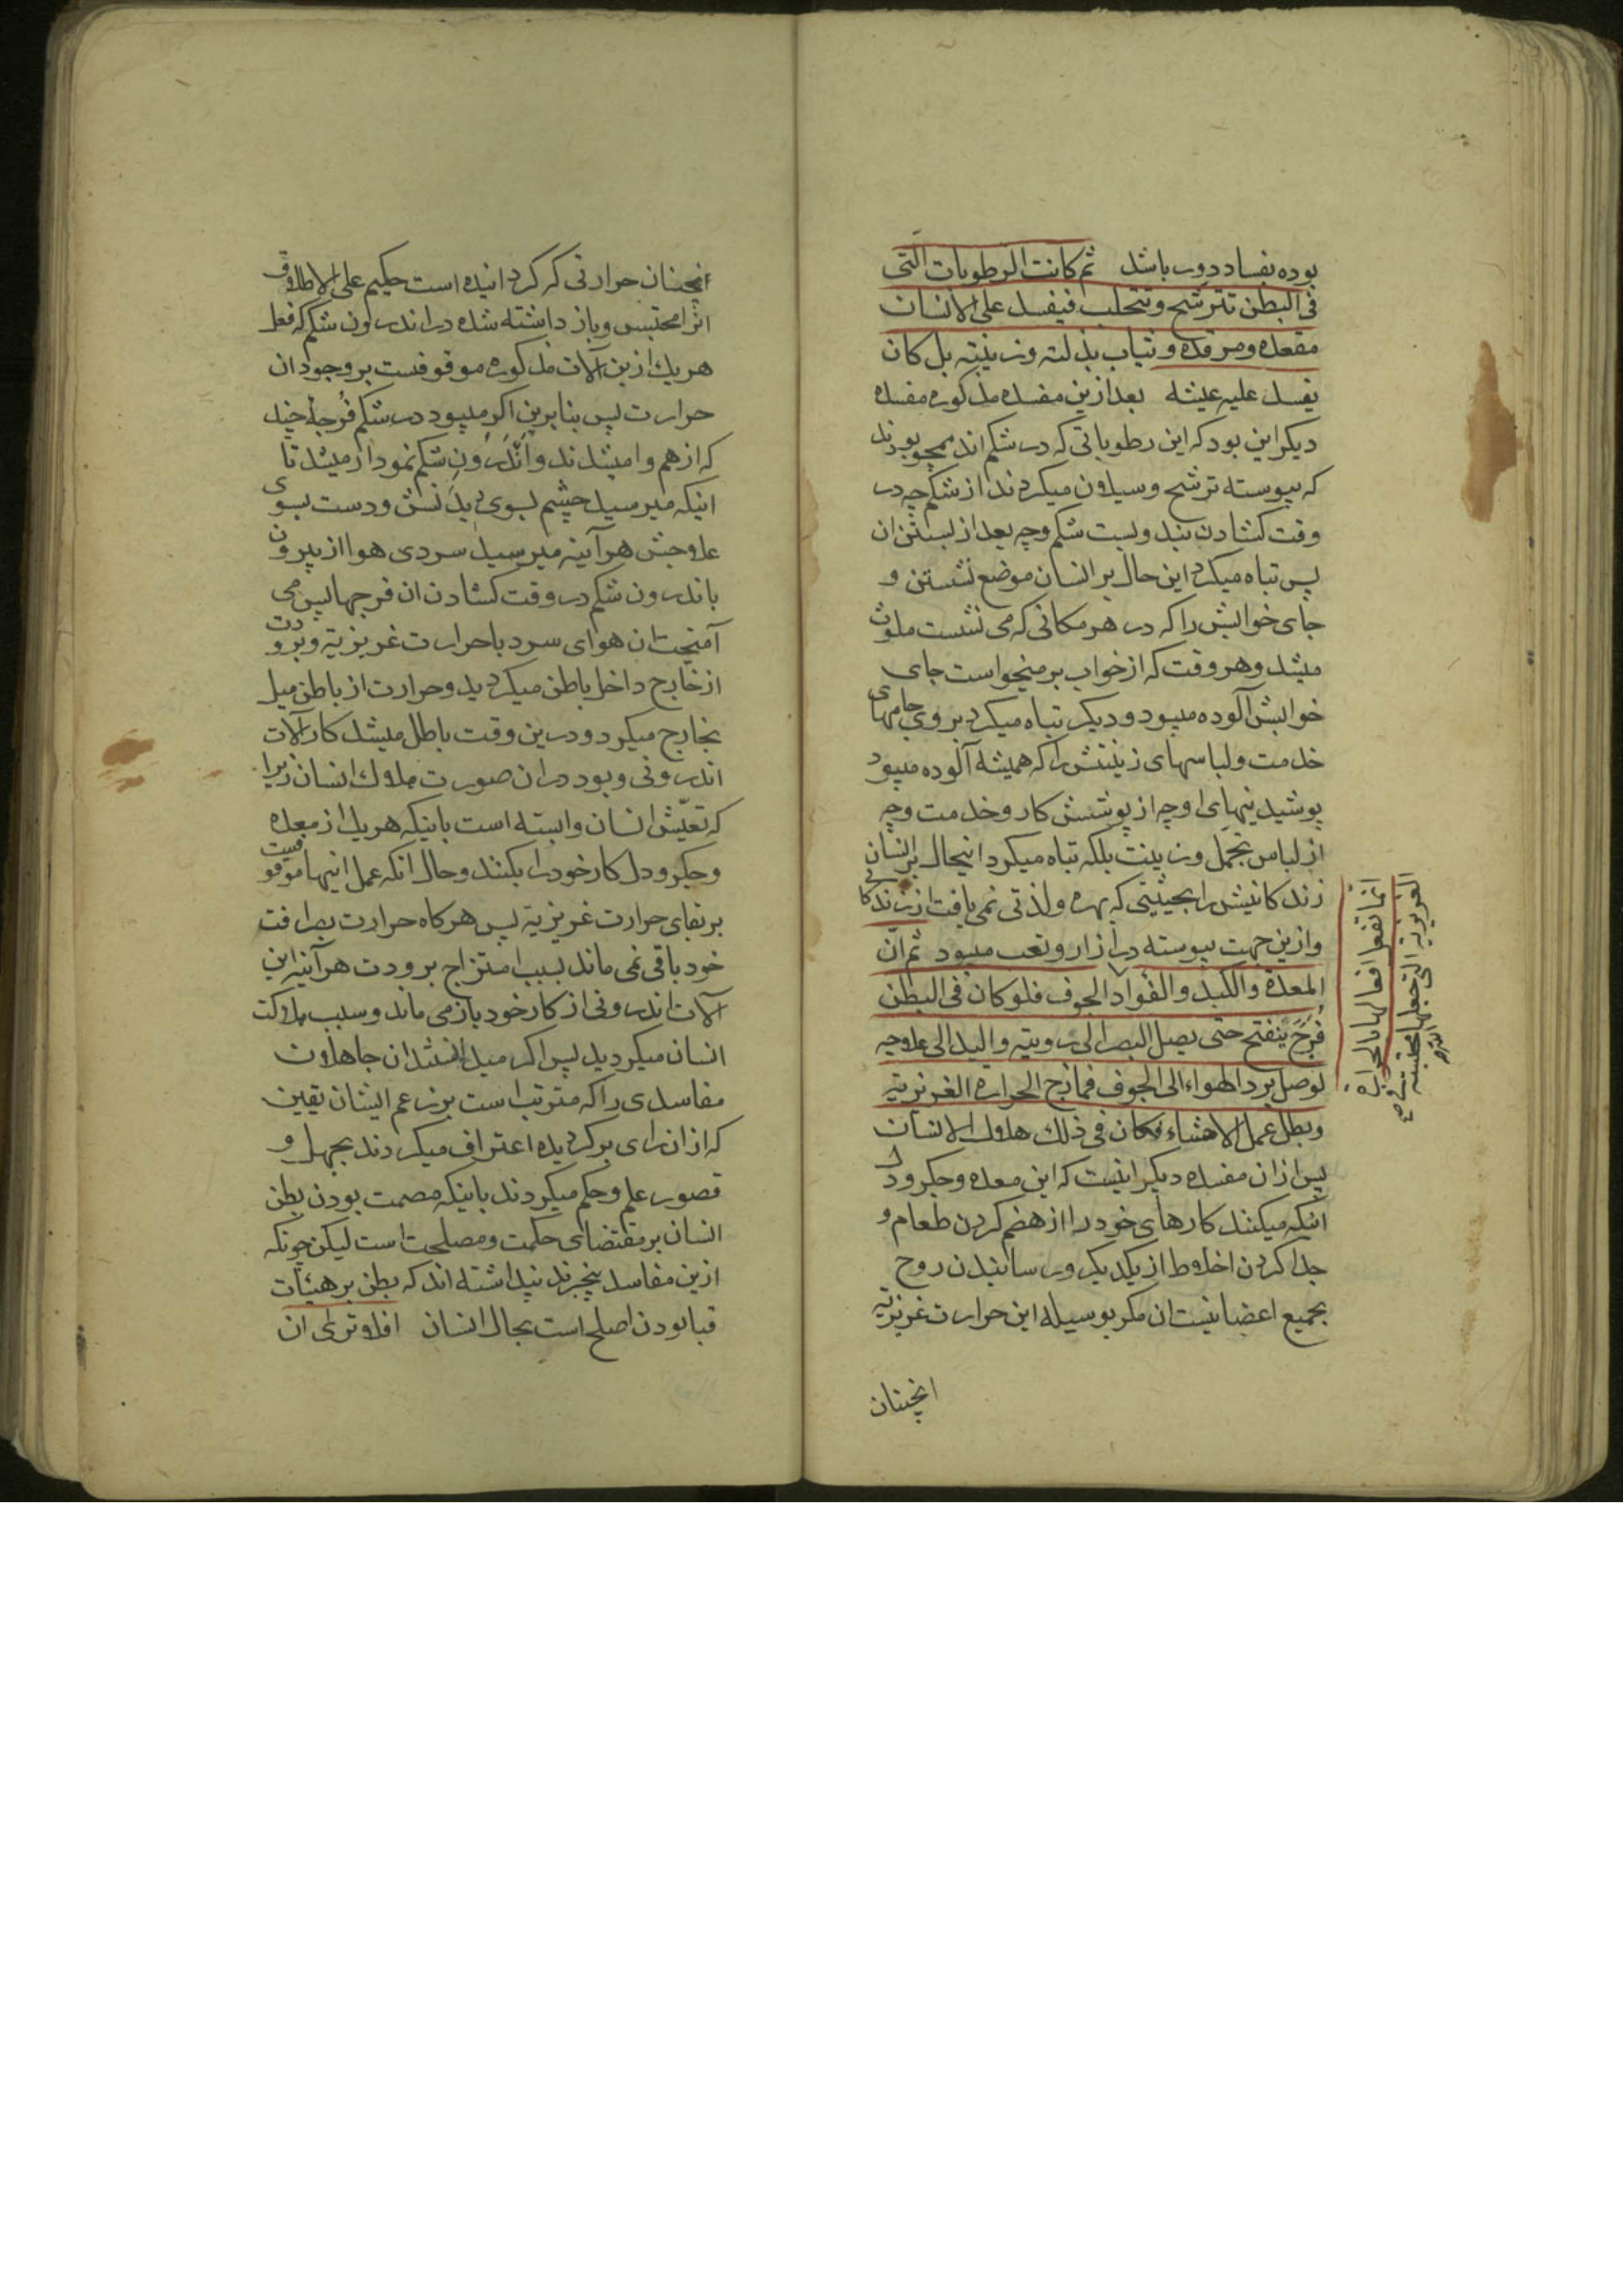 بوده بفساد دور باشد ثم كانت الرطوبات التی
فی البطن تترشح وتتحلب فیفسد علی الانسان
مقعده ومرقده وثیاب بذلته وزینته بل كان
یفسد علیه عیشه بعد ازین مفسده مذکوره مفسده
دیکر این بود که این رطوباتی که در شکم اند همچو بودند
که پیوسته ترشح وسیلان میکردند از شکم چه در
وقت کشادن بند وبست شکم وچه بعد از بستن ان
پس تباه میکرد این حال بر انسان موضع نشستن و
جای خوابش را که در هر مکانی که می نشست ملوث
میشد وهر وقت که از خواب بر میخواست جای
خوابش آلوده میبود ودیکر تباه میکرد بروی جامهای
خدمت ولباسهای زینتش را که همیشه آلوده میبود
پوشیدنیهای او چه از پوشش کار وخدمت وچه
از لباس تجمل وزینت بلکه تباه میکرد اینحال بر انسان
زندکانیش را بحیثیتی که بهره ولذتی نمی یافت از زندکانی
وازین جهت پیوسته در ازار وتعب میبود ثم ان
المعدة والكبد والفواد الجوف فلو كان فی البطن
فرج ینفتح حتی یصل البصر الی رویته والید الی علاجه
لوصل برد الهواء الی الجوف فمازج الحرارة الغریزیة
وبطل عمل الاحشاء فكان فی ذلك هلاك الانسان
پس از ان مفسده دیکر اینست که این معده وجکر ودل
اینکه میکنند کارهای خود را از هضم کردن طعام و
جدا کردن اخلاط از یکدیکر ورسانیدن روح
بجمیع اعضا نیست ان مکر بوسیله این حرارت غریزیه
انچنان
انما تفعل افعالها بالحرارة
الغریزیة التی جعلها محتبسة
انچنان حرارتی که کردانیده است حکیم علی الاطلاق
انرا محتبس وباز داشته شده در اندرون شکم که فعل
هر یك ازین آلات مذکوره موقوفست بر وجود ان
حرارت پس بنا برین اکر میبود در شکم فرجه چند
که از هم وا میشدند واندرون شکم نمودار میشد تا
اینکه میرسید چشم بسوی دیدنش ودست بسوی
علاجش هر آینه میرسید سردی هوا از بیرون
باندرون شکم در وقت کشادن ان فرجها پس می
آمیخت ان هوای سرد با حرارت غریزیه وبرودت
از خارج داخل باطن میکردید وحرارت از باطن میل
بخارج میکرد ودرین وقت باطل میشد کار آلات
اندرونی وبود در ان صورت هلاك انسان زیرا
که تعیش انسان وابسته است باینکه هر یك از معده
وجکر ودل کار خود را بکنند وحال انکه عمل اینها موقوفست
بر بقای حرارت غریزیه پس هر کاه حرارت بصرافت
خود باقی نمی ماند بسبب امتزاج برودت هر آینه این
آلات اندرونی از کار خود باز می ماند وسبب هلاکت
انسان میکردید پس اکر میدانستند ان جاهلان
مفاسدی را که مترتب است بر زعم ایشان یقین
که از ان رای بر کردیده اعتراف میکردند بجهل و
قصور علم وحکم میکردند باینکه مصمت بودن بطن
انسان بر مقتضای حکمت ومصلحت است لیکن چونکه
ازین مفاسد بیخبرند پنداشته اند که بطن بر هیئات
قبا بودن اصلح است بحال انسان افلا تری ان